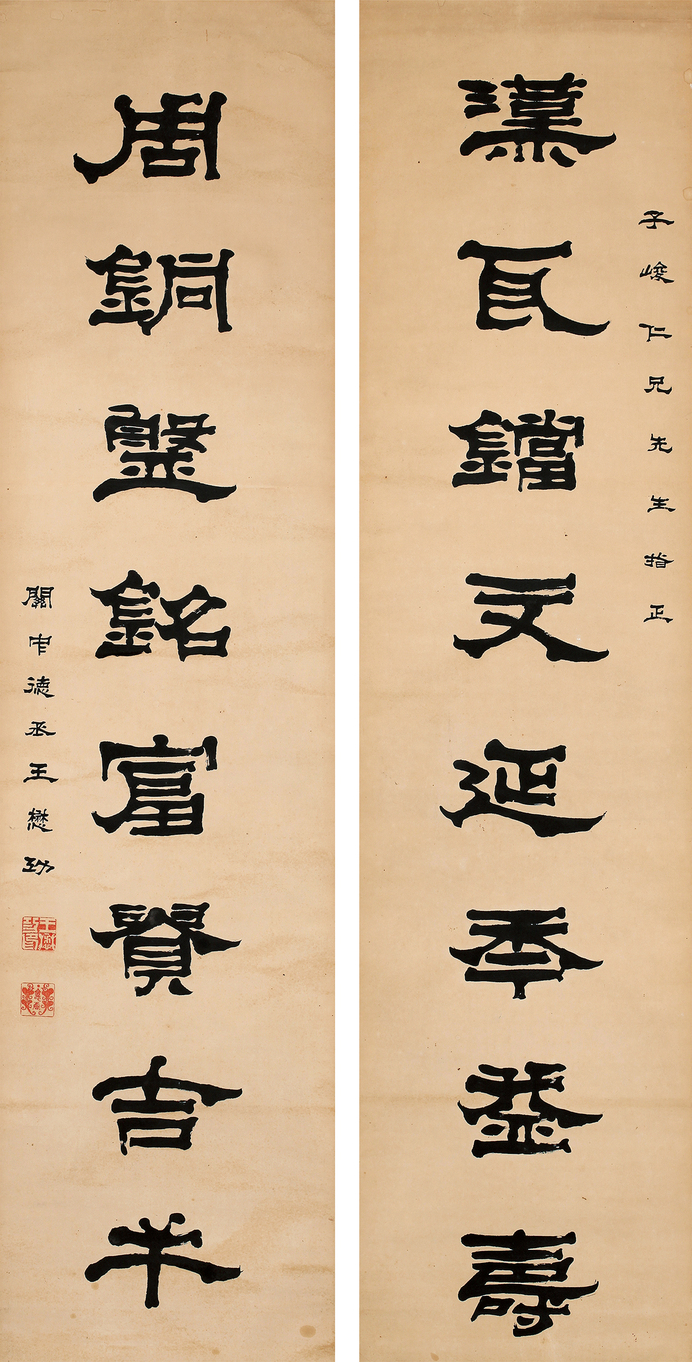 子峻仁兄先生指正
漢瓦鐺文延秊益壽
周銅盤銘富貴吉羊
關中德丞王懋功